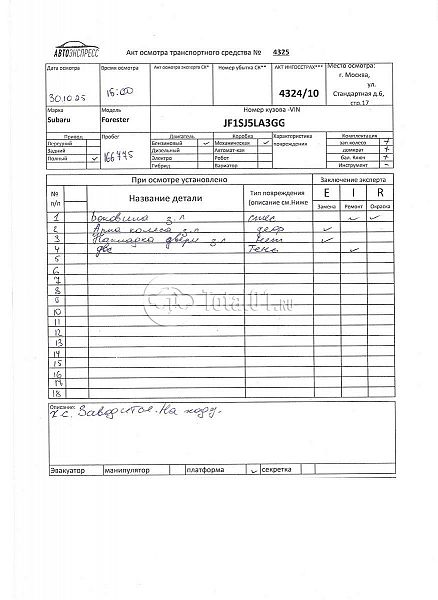 АВТОЭКСПРЕСС
Акт осмотра транспортного средства № 4325
Дата осмотра Время осмотра Акт осмотра эксперта СК* Номер убытка СК** АКТ ИНГОССТРАХ*** Место осмотра:
30.10.25 15:00 4324/10 г. Москва,
ул.
Стандартная д.6,
стр.17
Марка Модель Номер кузова -VIN
Subaru Forester JF1SJ5LA3GG
Привод Пробег Двигатель Коробка Характеристика повреждений Комплектация
Передний Бензиновый ✓ Механическая ✓ зап.колесо +
Задний 166775 Дизельный Автомат-кая домкрат +
Полный ✓ Электро Робот бал. Ключ +
Гибрид Вариатор Инструмент -
При осмотре установлено Заключение эксперта
№ п/п Название детали Тип повреждения (описание см.Ниже E I R
Замена Ремонт Окраска
1 Боковина з.л ✓ ✓
2 Арка колеса з.л деф ✓
3 Накладка двери з.л ✓
4 ✓
5
6
7
8
9
10
11
12
13
14
15
16
17
18
Total01.ru
Описание:
Х.С. Заводится. На ходу.
Эвакуатор манипулятор платформа ✓ секретка